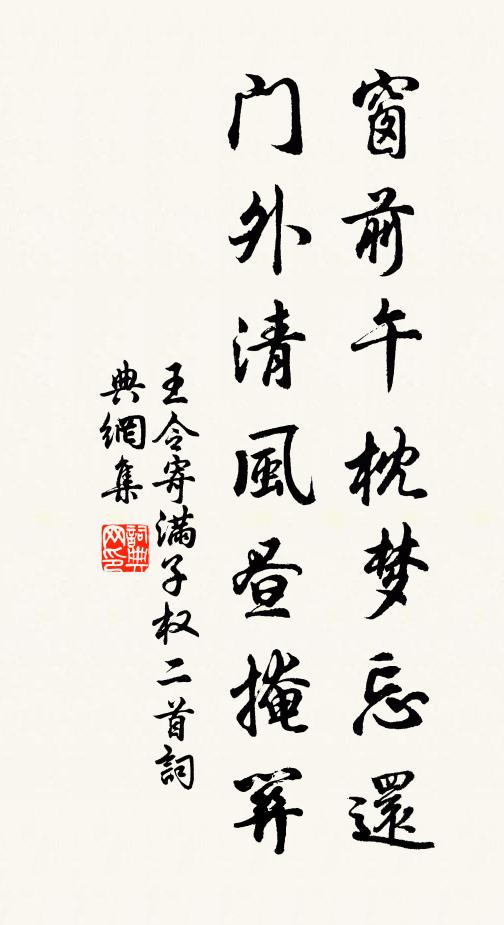 窗前午枕梦忘還
门外清風昼掩關
王令寄满子权二首詞
典網集
詞典
网印